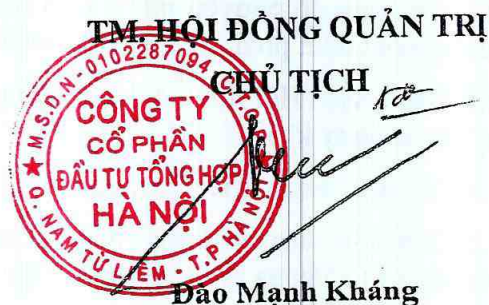 TM. HỘI ĐỒNG QUẢN TRỊ
CHỦ TỊCH
M.S.D.N - 0102287094 - C.T.C.P
CÔNG TY
CỔ PHẦN
ĐẦU TƯ TỔNG HỢP
HÀ NỘI
Q. NAM TỪ LIÊM - T.P HÀ NỘI
Đào Mạnh Kháng